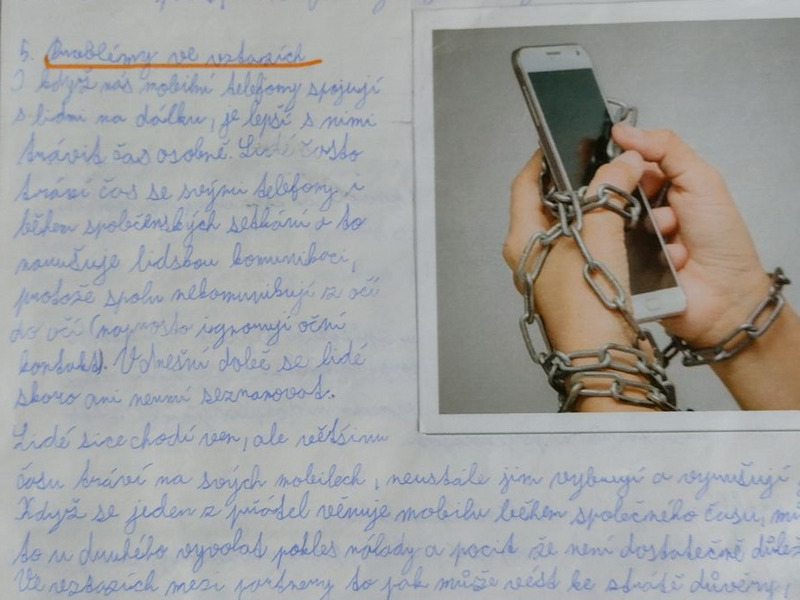 5. Problémy ve vztazích
I když nás mobilní telefony spojují
s lidmi na dálku, je lepší s nimi
trávit čas osobně. Lidé často
tráví čas se svými telefony i
během společenských setkání a to
narušuje lidskou komunikaci,
protože spolu nekomunikují z očí
do očí (naprosto ignorují oční
kontakt). V dnešní době se lidé
skoro ani neumí seznamovat.
Lidé sice chodí ven, ale většinu
času tráví na svých mobilech, neustále jim vybrují a vyrušují
Když se jeden z přátel věnuje mobilu během společného času,
to u druhého vyvolat pokles nálady a pocit že není dostatečně
Ve vztazích mezi partnery to pak může vést ke ztrátě důvěry,